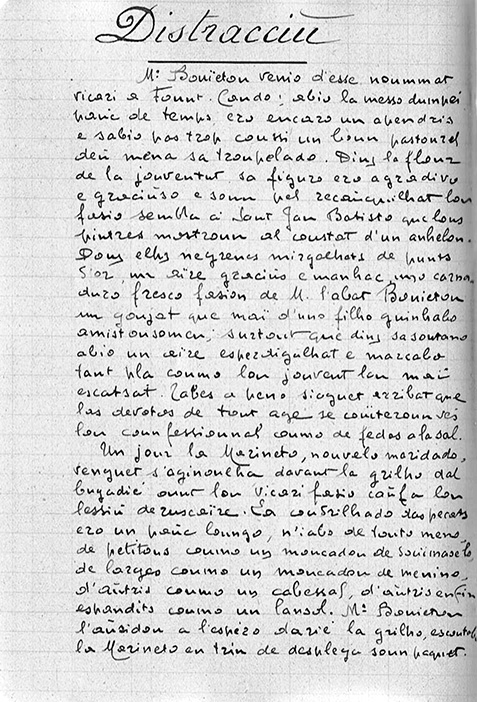 Distracciũ
Mr Bouïeton venio d'esse noummat
vicari a Fount-Cando; abio la messo dumpèi
panc de temps, ero encaro un apendris
e sabio pas trop coussi un boun pastourel
deu mena sa troupelado. Dins la flour
de la jouventut, sa figuro ero agradivo
e graciuso e soun pel recauquilhat lou
fasio sembla a Sant Jan Batisto que lous
pintres mostroun al coustat d'un anhelou.
Dous elhs negrencs mirgalhats de punts
d'or, un aire gracius e manhac, uno carna-
duro fresco fasion de M. l'abat Bouïeton
un goujat que mai d'uno filho guinhabo
amistousomen; surtout que dins sa soutano
abio un aire esperdigalhat e marcabo
tant pla coumo lou jouvent lou mai
escarsat. Tabes a peno siaguet arribat que
las devotos de tout age se couiteroun ves
lou counfessiounal coumo de fedos a la sal.
Un jour la Marineto, nouvelo maridado,
venguet s'aginoulha davant la grilho dal
bugadié ount lou vicari fasio caufa lou
lessiu de ruscaire. La coudrilhado das pecats
ero un pauc loungo, n'i abo de touto meno,
de petitous coumo un moucadou de
de larges coumo un moucadou de menino,
d'autris coumo un cabessal, d'autris enfin
espandits coumo un lansol. Mr Bouïeton
l'ausidou a l'espèro darié la grilho, escoutabo
la Marineto en trin de desplega soun paquet.